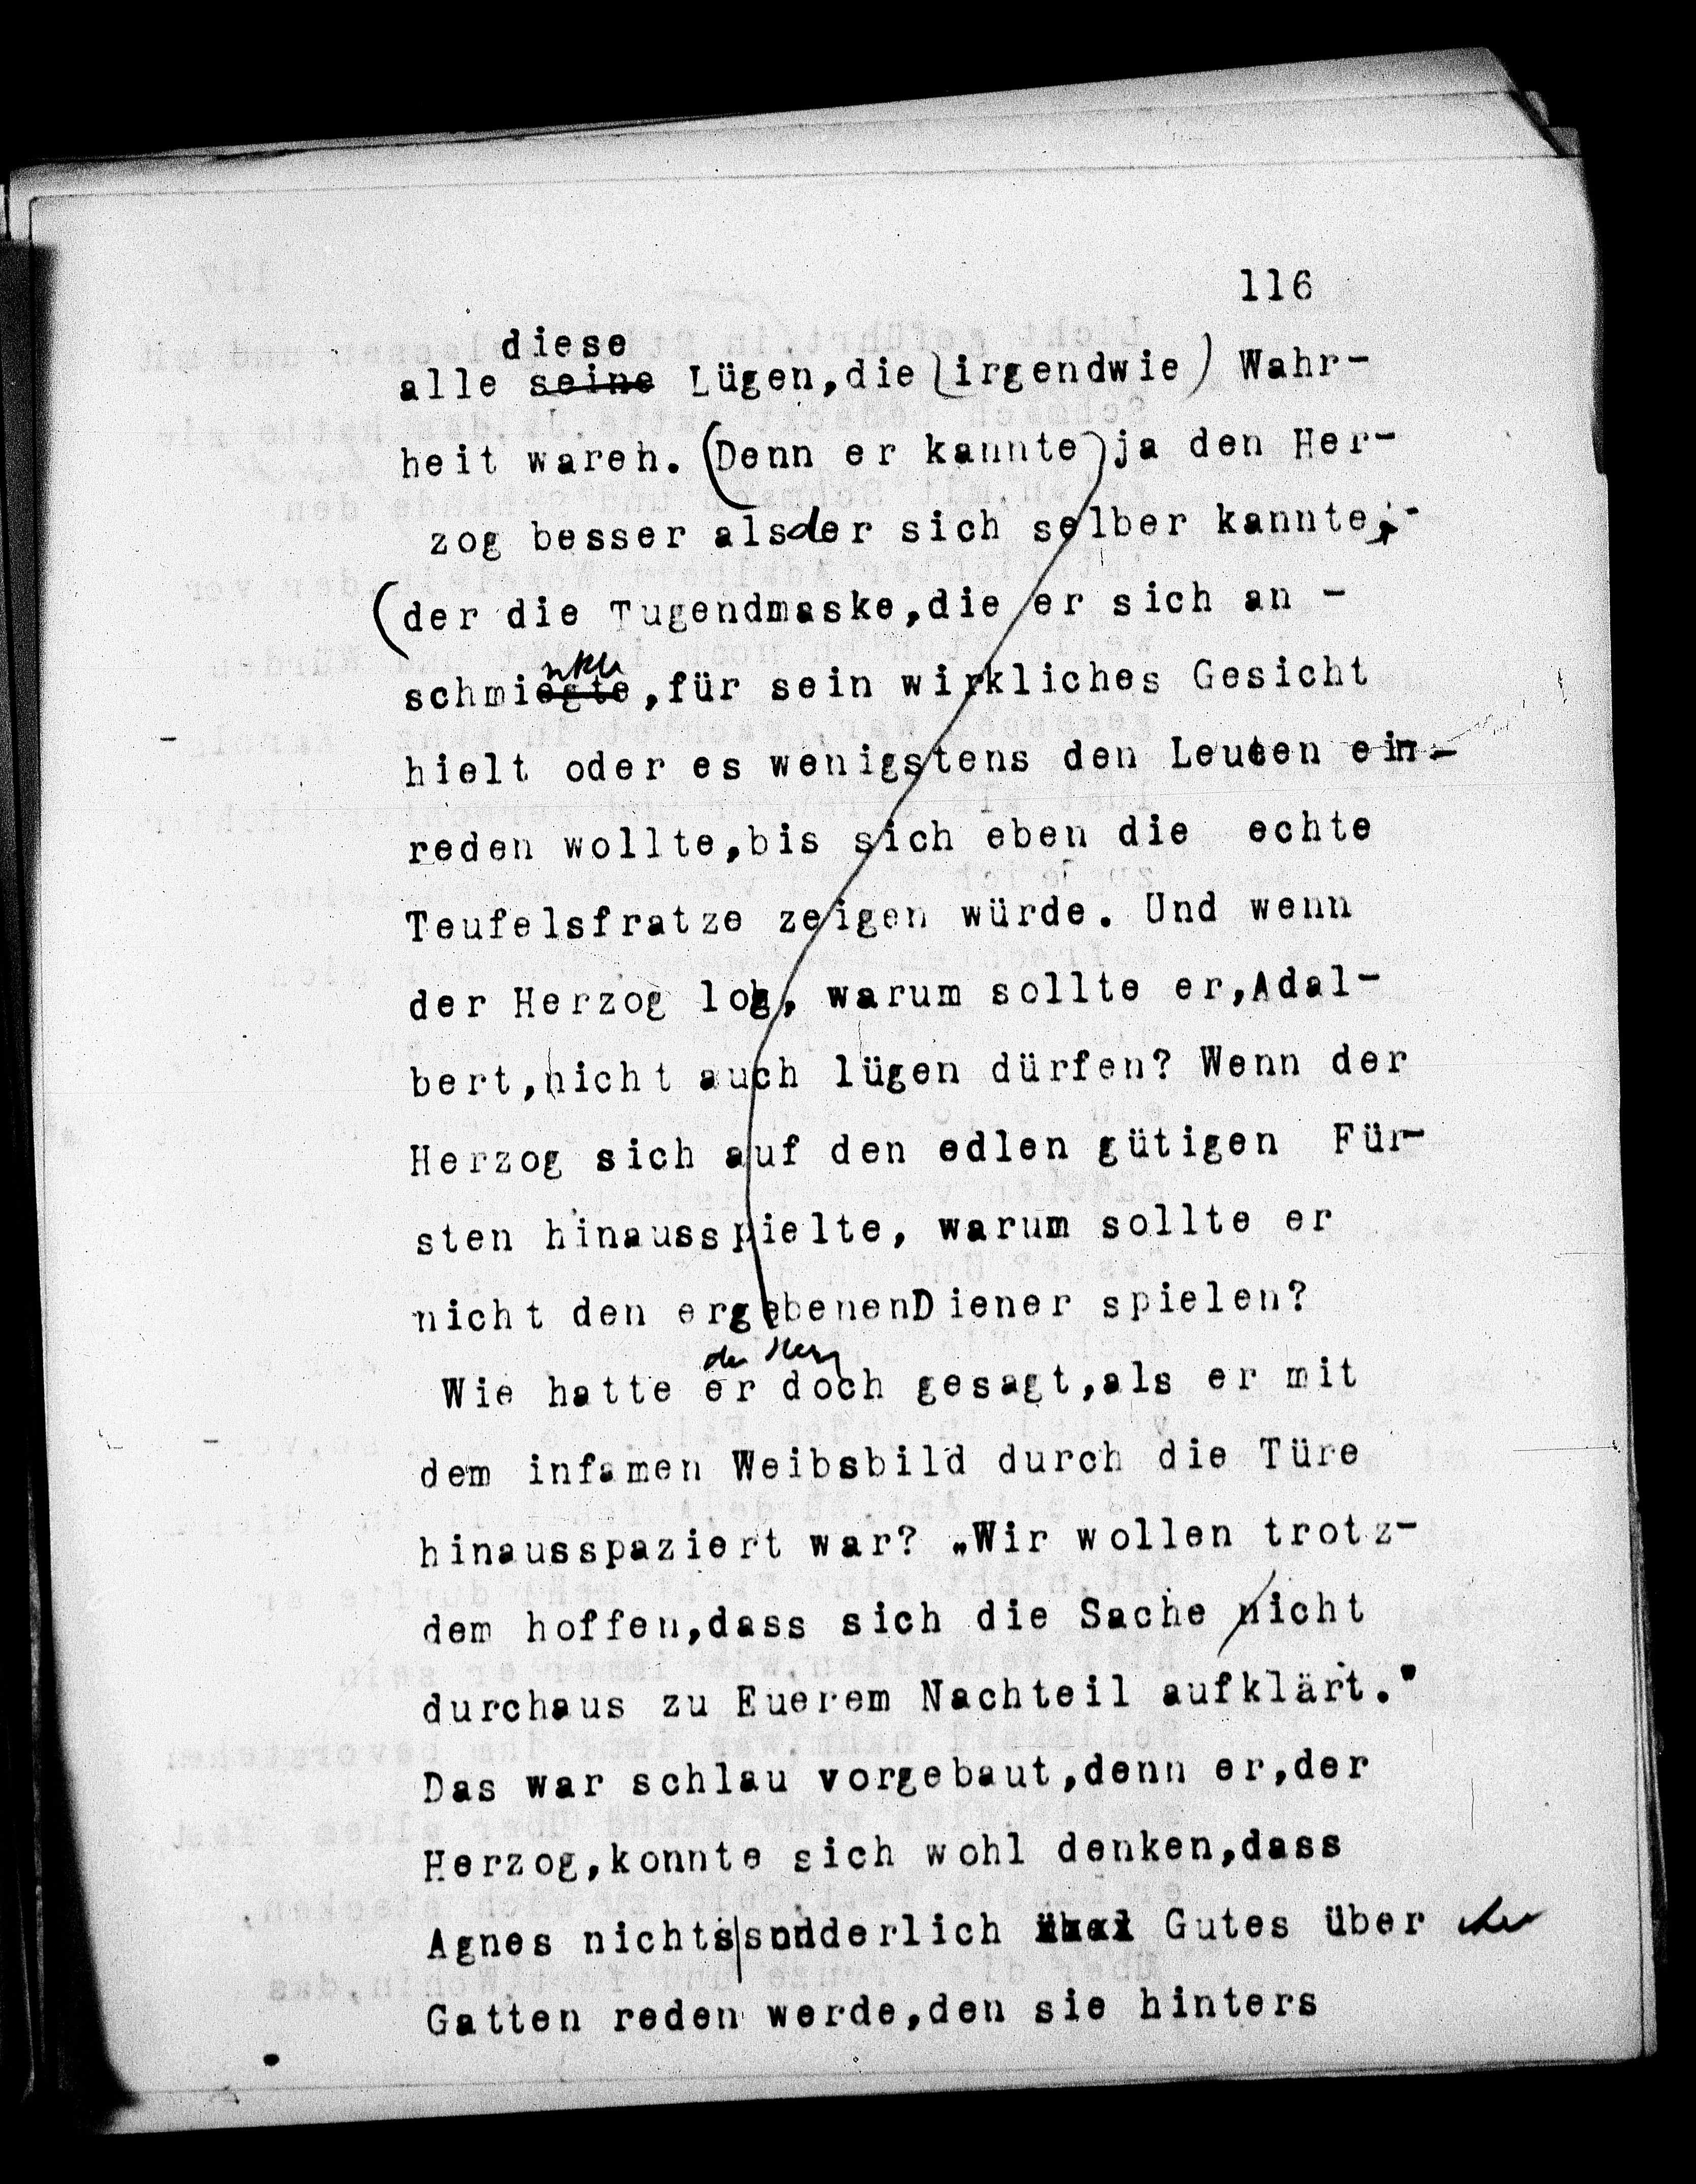 116
diese
alle seine Lügen,die (irgendwie) Wahr-
heit waren. (Denn er kannte) ja den Her-
zog besser als der sich selber kannte,-
(der die Tugendmaske,die er sich an -
schmiegte,für sein wirkliches Gesicht
hielt oder es wenigstens den Leuten ein-
reden wollte,bis sich eben die echte
Teufelsfratze zeigen würde. Und wenn
der Herzog log, warum sollte er,Adal-
bert,nicht auch lügen dürfen? Wenn der
Herzog sich auf den edlen gütigen Für-
sten hinausspielte, warum sollte er
nicht den ergebenenDiener spielen?
der Herz
Wie hatte er doch gesagt,als er mit
dem infamen Weibsbild durch die Türe
hinausspaziert war? „Wir wollen trotz-
dem hoffen,dass sich die Sache nicht
durchaus zu Euerem Nachteil aufklärt."
Das war schlau vorgebaut,denn er,der
Herzog,konnte sich wohl denken,dass
Agnes nichts|sonderlich Gutes über
Gatten reden werde,den sie hinters